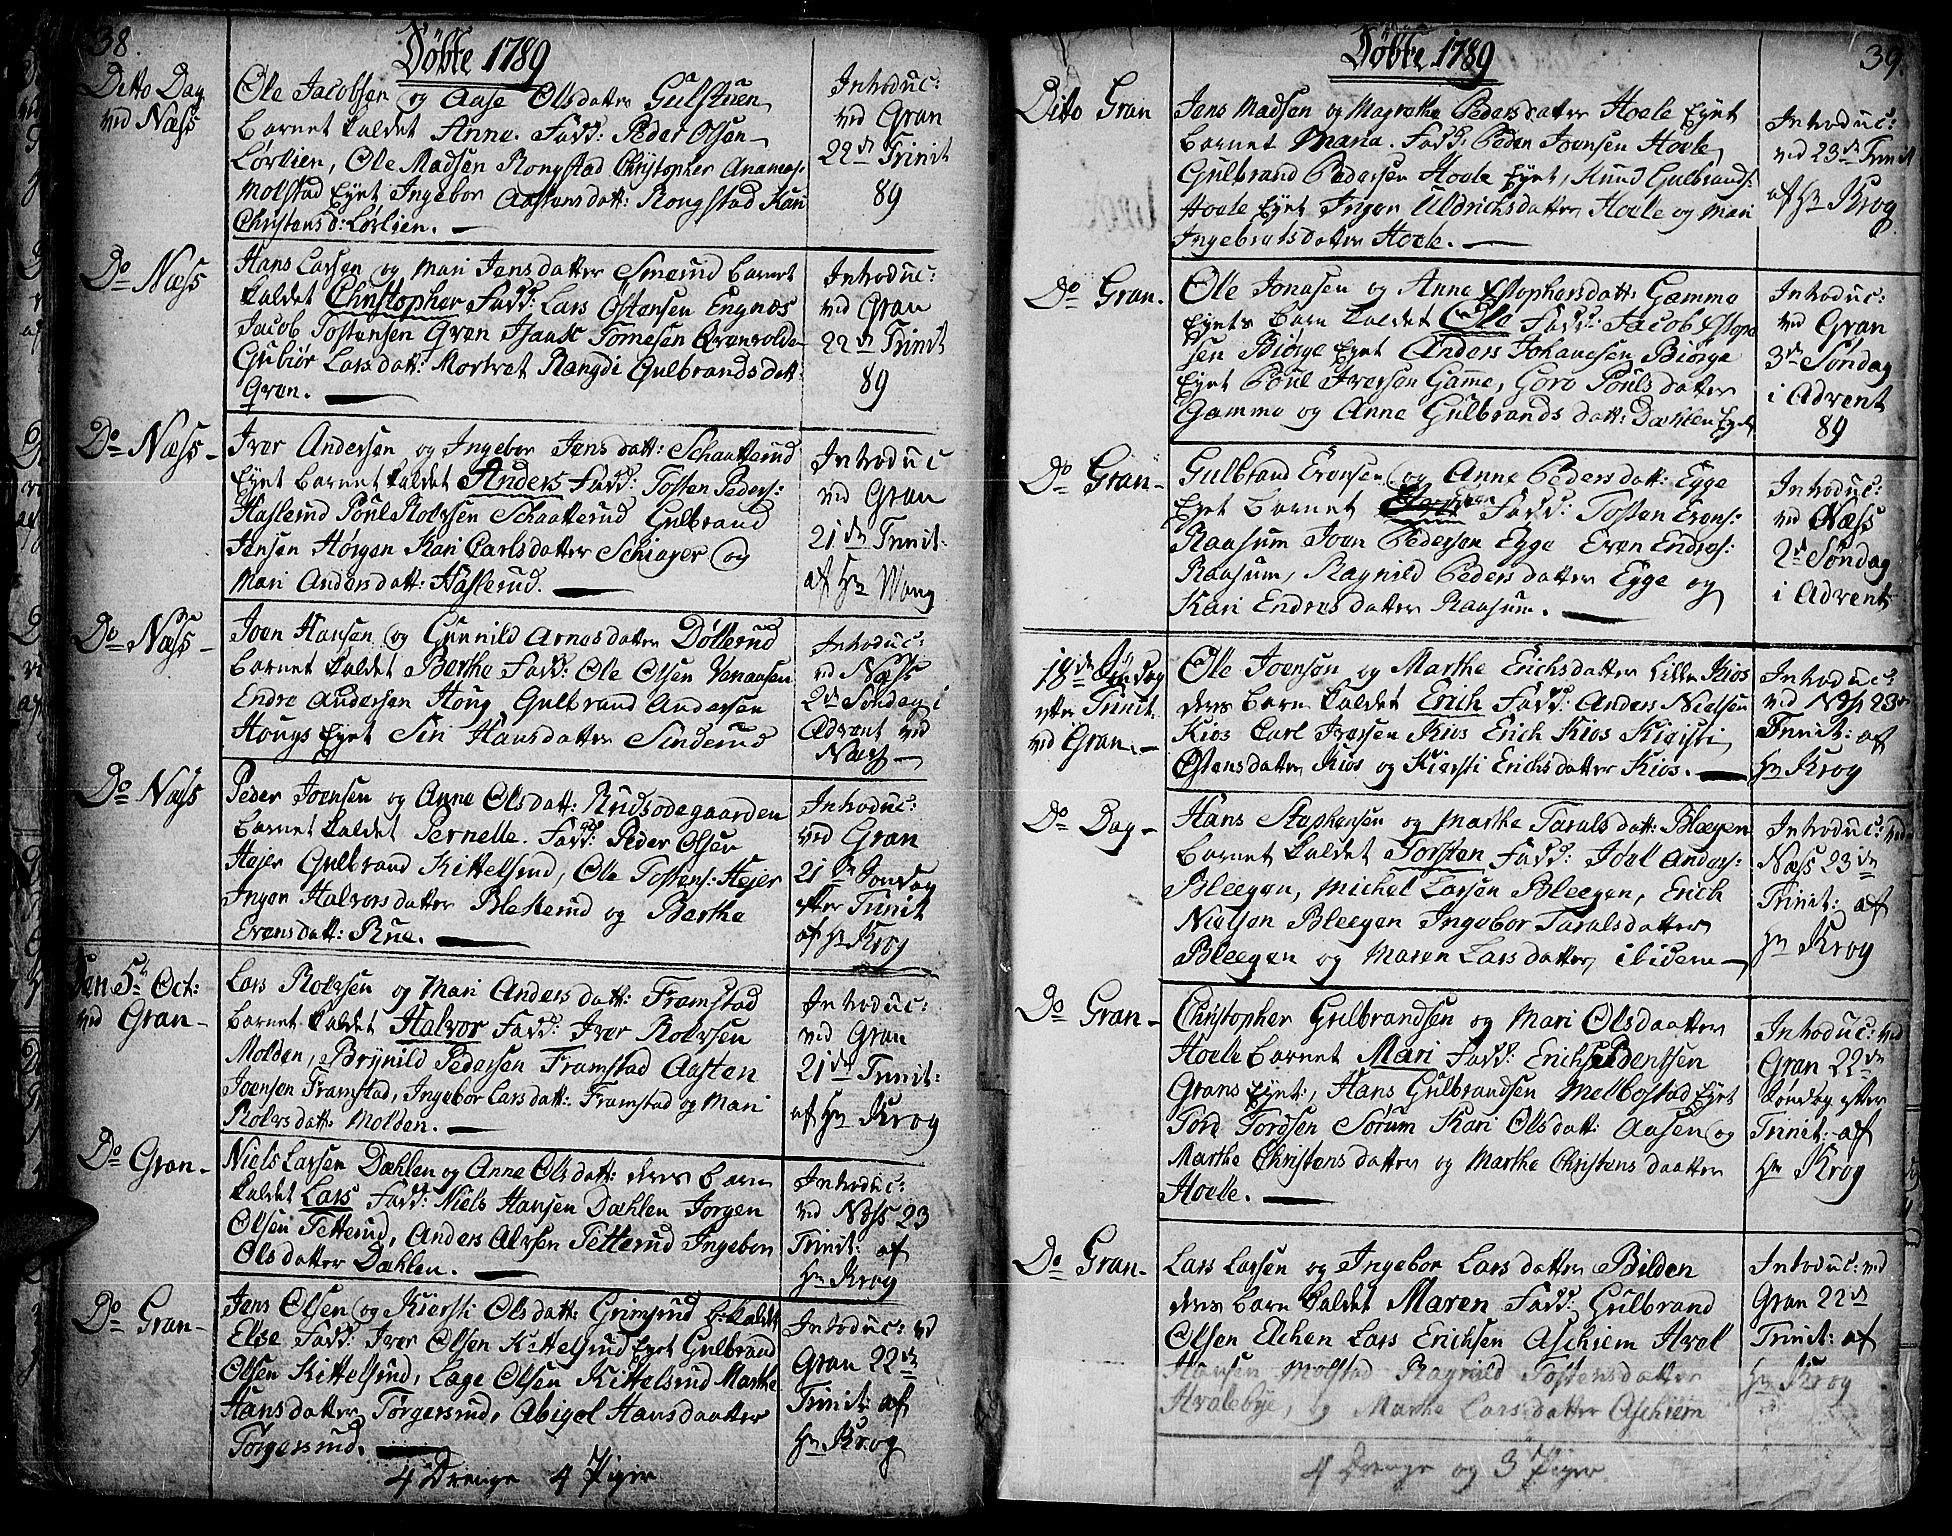 38.
Döbte 1789
Ditto Dag
ved Næss
Ole Jacobsen og Aase Olsdatter Gulstuen
barnet kaldet Anne. Fadd: Peder Olsen
Lørlien, Ole Madsen Rongstad Christopher
Molstad Eyet Ingebor Aastensdatt: Rongstad Kari
Christensd: Lørlien.
Introduc:
ved Gran
22de Trinit
89
Do Næss
Hans Larsen og Mari Jensdatter Smerud barnet
kaldet Christopher Fadd: Lars Østensen Engnæs
Jacob Tostensen Gren Isaak Tomesen Grenvolde
Gubiör Larsdatt: Mortvet Rangdi Gulbrandsdatt:
Gren.
Introduc:
ved Gran
22de Trinit
89
Do Næss
Iver Andersen og Ingebor Jensdatt: Schaatterud
Eyet barnet kaldet Anders Fadd: Tosten Peders:
Haslerud Poul Rolvsen Schaatterud Gulbrand
Jensen Hørgen Kari Carlsdatter Schiager og
Mari Andersdatt: Haslerud.
Introduc
ved Gran
21de Trinit:
af Hr Wang
Do Næss
Joen Hansen og Gunnild Arnesdatter Döllerud
barnet kaldet Berthe Fadd: Ole Olsen Vanaasen
Endre Andersen Houg Gulbrand Andersen
Hougs Eyet Siri Hansdatter Sinderud
Introduc:
vd Næss
2de Söndag i
Advent ved
Næss
Do Næss
Peder Joensen og Anne Olsdatt: Rudsodegaarden
barnet kaldet Pernelle. Fadd: Peder Olsen
Hejer Gulbrand Kittelsrud, Ole Tostens: Hejer
Inger Halvorsdatter Blekerud og Berthe
Evensdatt: Rue.
Introduc:
ved Gran
21de Sondag
efter Trinit
af Hr Krog
Den 5te Oct:
ved Gran
Lars Rolvsen og Mari Andersdatt: Framstad
barnet kaldet Halvor Fadd: Iver Rolvsen
Molden, Brynild Pedersen Framstad Aasten
Joensen Framstad, Ingebor Larsdatt: Framstad og Mari
Rolvsdatt: Molden.
Introduc:
ved Gran
21de Trinit:
af Hr Krog
Do Gran
Niels Larsen Dæhlen og Anne Olsdatt: deres barn
kaldet Lars Fadd: Niels Hansen Dæhlen Jorgen
Olsen Tetterud, Anders Alvsen Tetterud Ingebor
Olsdatter Dæhlen.
Introduc:
ved Næss 23
Trinit: af
Hr Krog
Do Gran
Jens Olsen og Kiersti Olsdatt: Grimsrud b: kaldet
Else Fadd: Iver Olsen Kittelsrud Eyet Gulbrand
Olsen Kittelsrud, Lage Olsen Kittelsrud Marthe
Hansdatter Torgersrud, Abigel Hansdaatter
Torgersrud.
Introduc: vd
Gran 22de
Trinit: af
Hr Krog
4 Drenge 4 Piger
39.
Döbte 1789
Dito Gran
Jens Madsen og Magrethe Pedersdatter Hoele Eyet
barnet Maria. Fadd: Peder Joensen Hoele,
Gulbrand Pedersen Hoele Eyet, Knud Gulbrands:
Hoele Eyet Inger Uldrichsdatter Hoele og Mari
Ingebretsdatter Hoele.
Introduc:
ved 23de Trinit
af Hr Krog
Do Gran
Ole Jonasen og Anne Xstophersdatt: Gamme
Eyets barn kaldet Ole Fadd: Jacob Xstopher
sen Biørge Eyet Anders Johannesen Biørge
Eyet Poul Iversen Gamme, Goro Poulsdatter
Gamme og Anne Gulbrandsdatt: Dæhlen Eyet
Introduc:
ved Gran
3de Söndag
i Advent
89
Do Gran
Gulbrand Evensen og Anne Pedersdatt: Egge
Eyet barnet Fadd: Tosten Evens:
Raasum Joen Pedersen Egge Even Endres:
Raasum, Ragnild Pedersdatter Egge og
Kari Endresdatter Raasum.
Introduc:
ved Næss
2de Söndag
i Advent
18de Söndag
efter Trinit:
ved Gran.
Ole Joensen og Marthe Erichsdatter Lille Kios
deres barn kaldet Erich Fadd: Anders Nielsen
Kios Carl Iversen Kios Erich Kios Kiersti
Ostensdatter Kios og Kiersti Erichsdatter Kios.
Introduc:
ved Næss 23de
Trinit: af
Hr Krog
Do Dag
Hans Stephensen og Marthe Taralsdatt: Bleegen
barnet kaldet Torsten Fadd: Joel Anders:
Bleegen, Michel Larsen Bleegen, Erich
Nielsen Bleegen Ingebor Taralsdatter
Bleegen og Maren Larsdatter ibidem
Introduc: ved
Næss 23de
Trinit: af
Hr Krog
Do Gran
Christopher Gulbrandsen og Mari Olsdaatter
Hoele barnet Mari Fadd: Erich
Grans Eyet, Hans Gulbrandsen Melbostad Eyet
Tord Tordsen Sorum Kari Olsdatt: Aasen og
Marthe Christensdatter og Marthe Christensdaatter
Hoele.
Introduc: ved
Gran 22de
Söndag efter
Trinit: af
Hr Krog
Do Gran
Lars Larsen og Ingebor Larsdatter Bilden
deres barn kaldet Maren Fadd: Gulbrand
Olsen Elchen Lars Erichsen Aschiem Hvol
Hansen Molstad Ragnild Tostensdatter
Hvalebye, og Marthe Larsdatter Aschiem
Introduc: ved
Gran 22de
Trinit: af
Hr Krog
4 Drenge og 3 Piger.